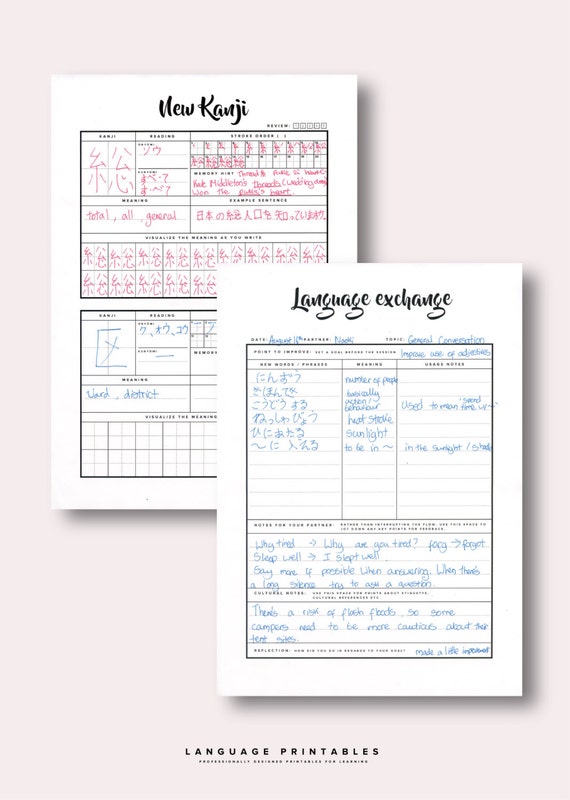 New Kanji
REVIEW: 1 2 3 4 5
KANJI READING STROKE ORDER ( )
総
ONYOMI:
ソウ
KUNYOMI:
すべ・て
す・べて
MEMORY HINT Thread & Public is heart
Kate Middleton's threads (wedding dress)
Won the public's heart.
MEANING EXAMPLE SENTENCE
total, all, general
日本の総人口を知っていますか。
VISUALIZE THE MEANING AS YOU WRITE
総 総 総 総 総 総 総 総 総
総 総 総 総 総 総 総 総 総
KANJI READING
区
ONYOMI:
ク、オウ、コウ
KUNYOMI:
—
MEMORY
MEANING
Ward, district
VISUALIZE THE MEANING
Language exchange
DATE: August 16th PARTNER: Naoki TOPIC: General Conversation
POINT TO IMPROVE: SET A GOAL BEFORE THE SESSION Improve use of adjectives
NEW WORDS / PHRASES MEANING USAGE NOTES
にんずう number of people
きほんてき basically
こうどうする action / behaviour Used to mean 'spend time w/~'
ねっしゃびょう heat stroke
ひにあたる sunlight
〜に入える to be in ~ in the sunlight / shade
NOTES FOR YOUR PARTNER: RATHER THAN INTERRUPTING THE FLOW, USE THIS SPACE TO
JOT DOWN ANY KEY POINTS FOR FEEDBACK.
Why tired → Why are you tired? forg → forgot
Sleep well → I slept well
Say more if possible when answering. When there's
a long silence try to ask a question.
CULTURAL NOTES: USE THIS SPACE FOR POINTS ABOUT ETIQUETTE,
CULTURAL REFERENCES ETC
There's a risk of flash floods, so some
campers need to be more cautious about their
tent sites.
REFLECTION: HOW DID YOU DO IN REGARDS TO YOUR GOAL? made a little improvement
LANGUAGE PRINTABLES
PROFESSIONALLY DESIGNED PRINTABLES FOR LEARNING